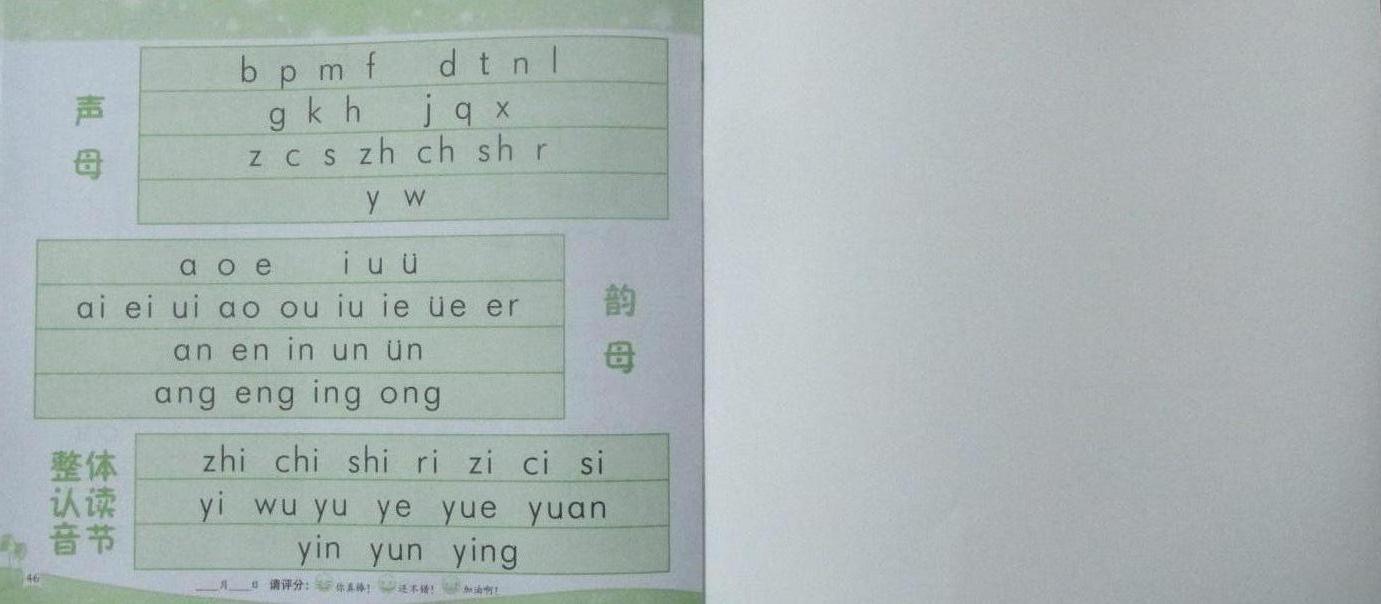 声母
b p m f d t n l
g k h j q x
z c s zh ch sh r
y w
韵母
a o e i u ü
ai ei ui ao ou iu ie üe er
an en in un ün
ang eng ing ong
整体
认读
音节
zhi chi shi ri zi ci si
yi wu yu ye yue yuan
yin yun ying
46
___月___日 请评分: 你真棒! 还不错! 加油啊!